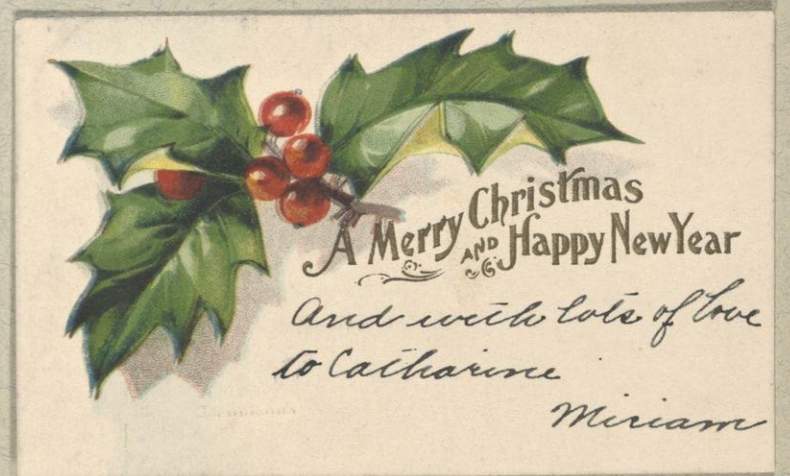 A Merry Christmas
AND Happy New Year
And with lots of love
to Catharine
Miriam